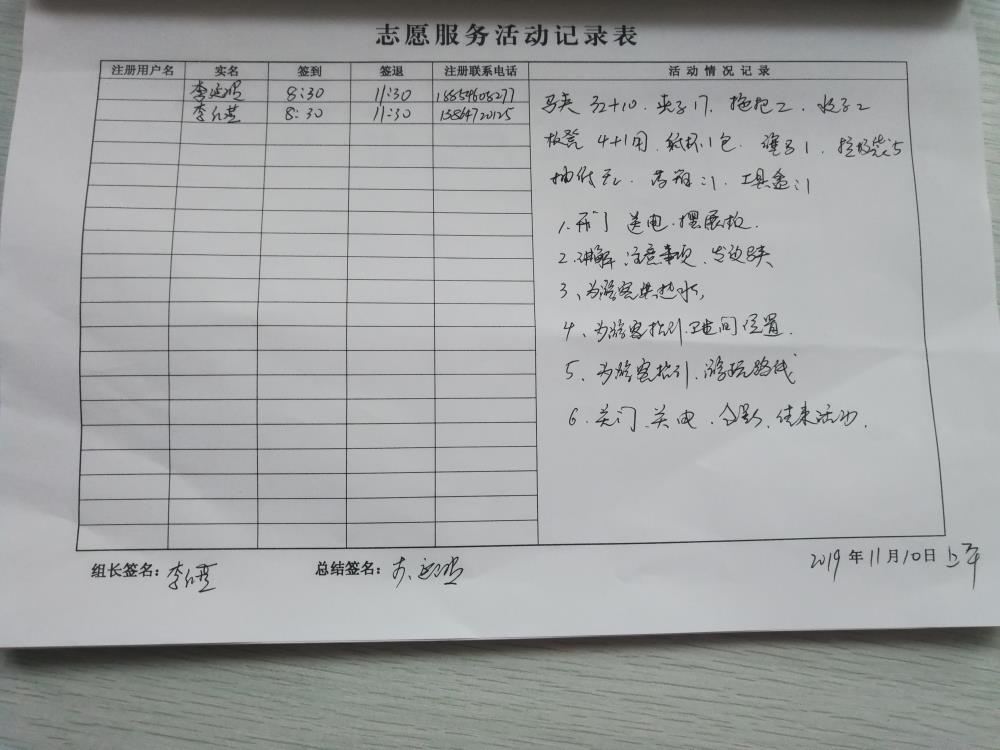 志愿服务活动记录表
注册用户名 实名 签到 签退 注册联系电话 活动情况记录
李 8:30 11:30 18854808277
李红燕 8:30 11:30 13864720125
马夹 32+10. 夹子17. 拖把2. 水子2
板凳 4+1用. 纸杯1包. 1. 垃圾袋5
抽纸 2. 工具盒:1
1. 开门 送电. 摆展板.
2. 讲解 注意事项、发放马夹
3、为游客供热水,
4、为游客指引卫生间位置.
5、为游客指引、游玩路线
6. 关门、关电. 合影、结束活动.
组长签名: 李红燕 总结签名: 李
2019年11月10日 上午